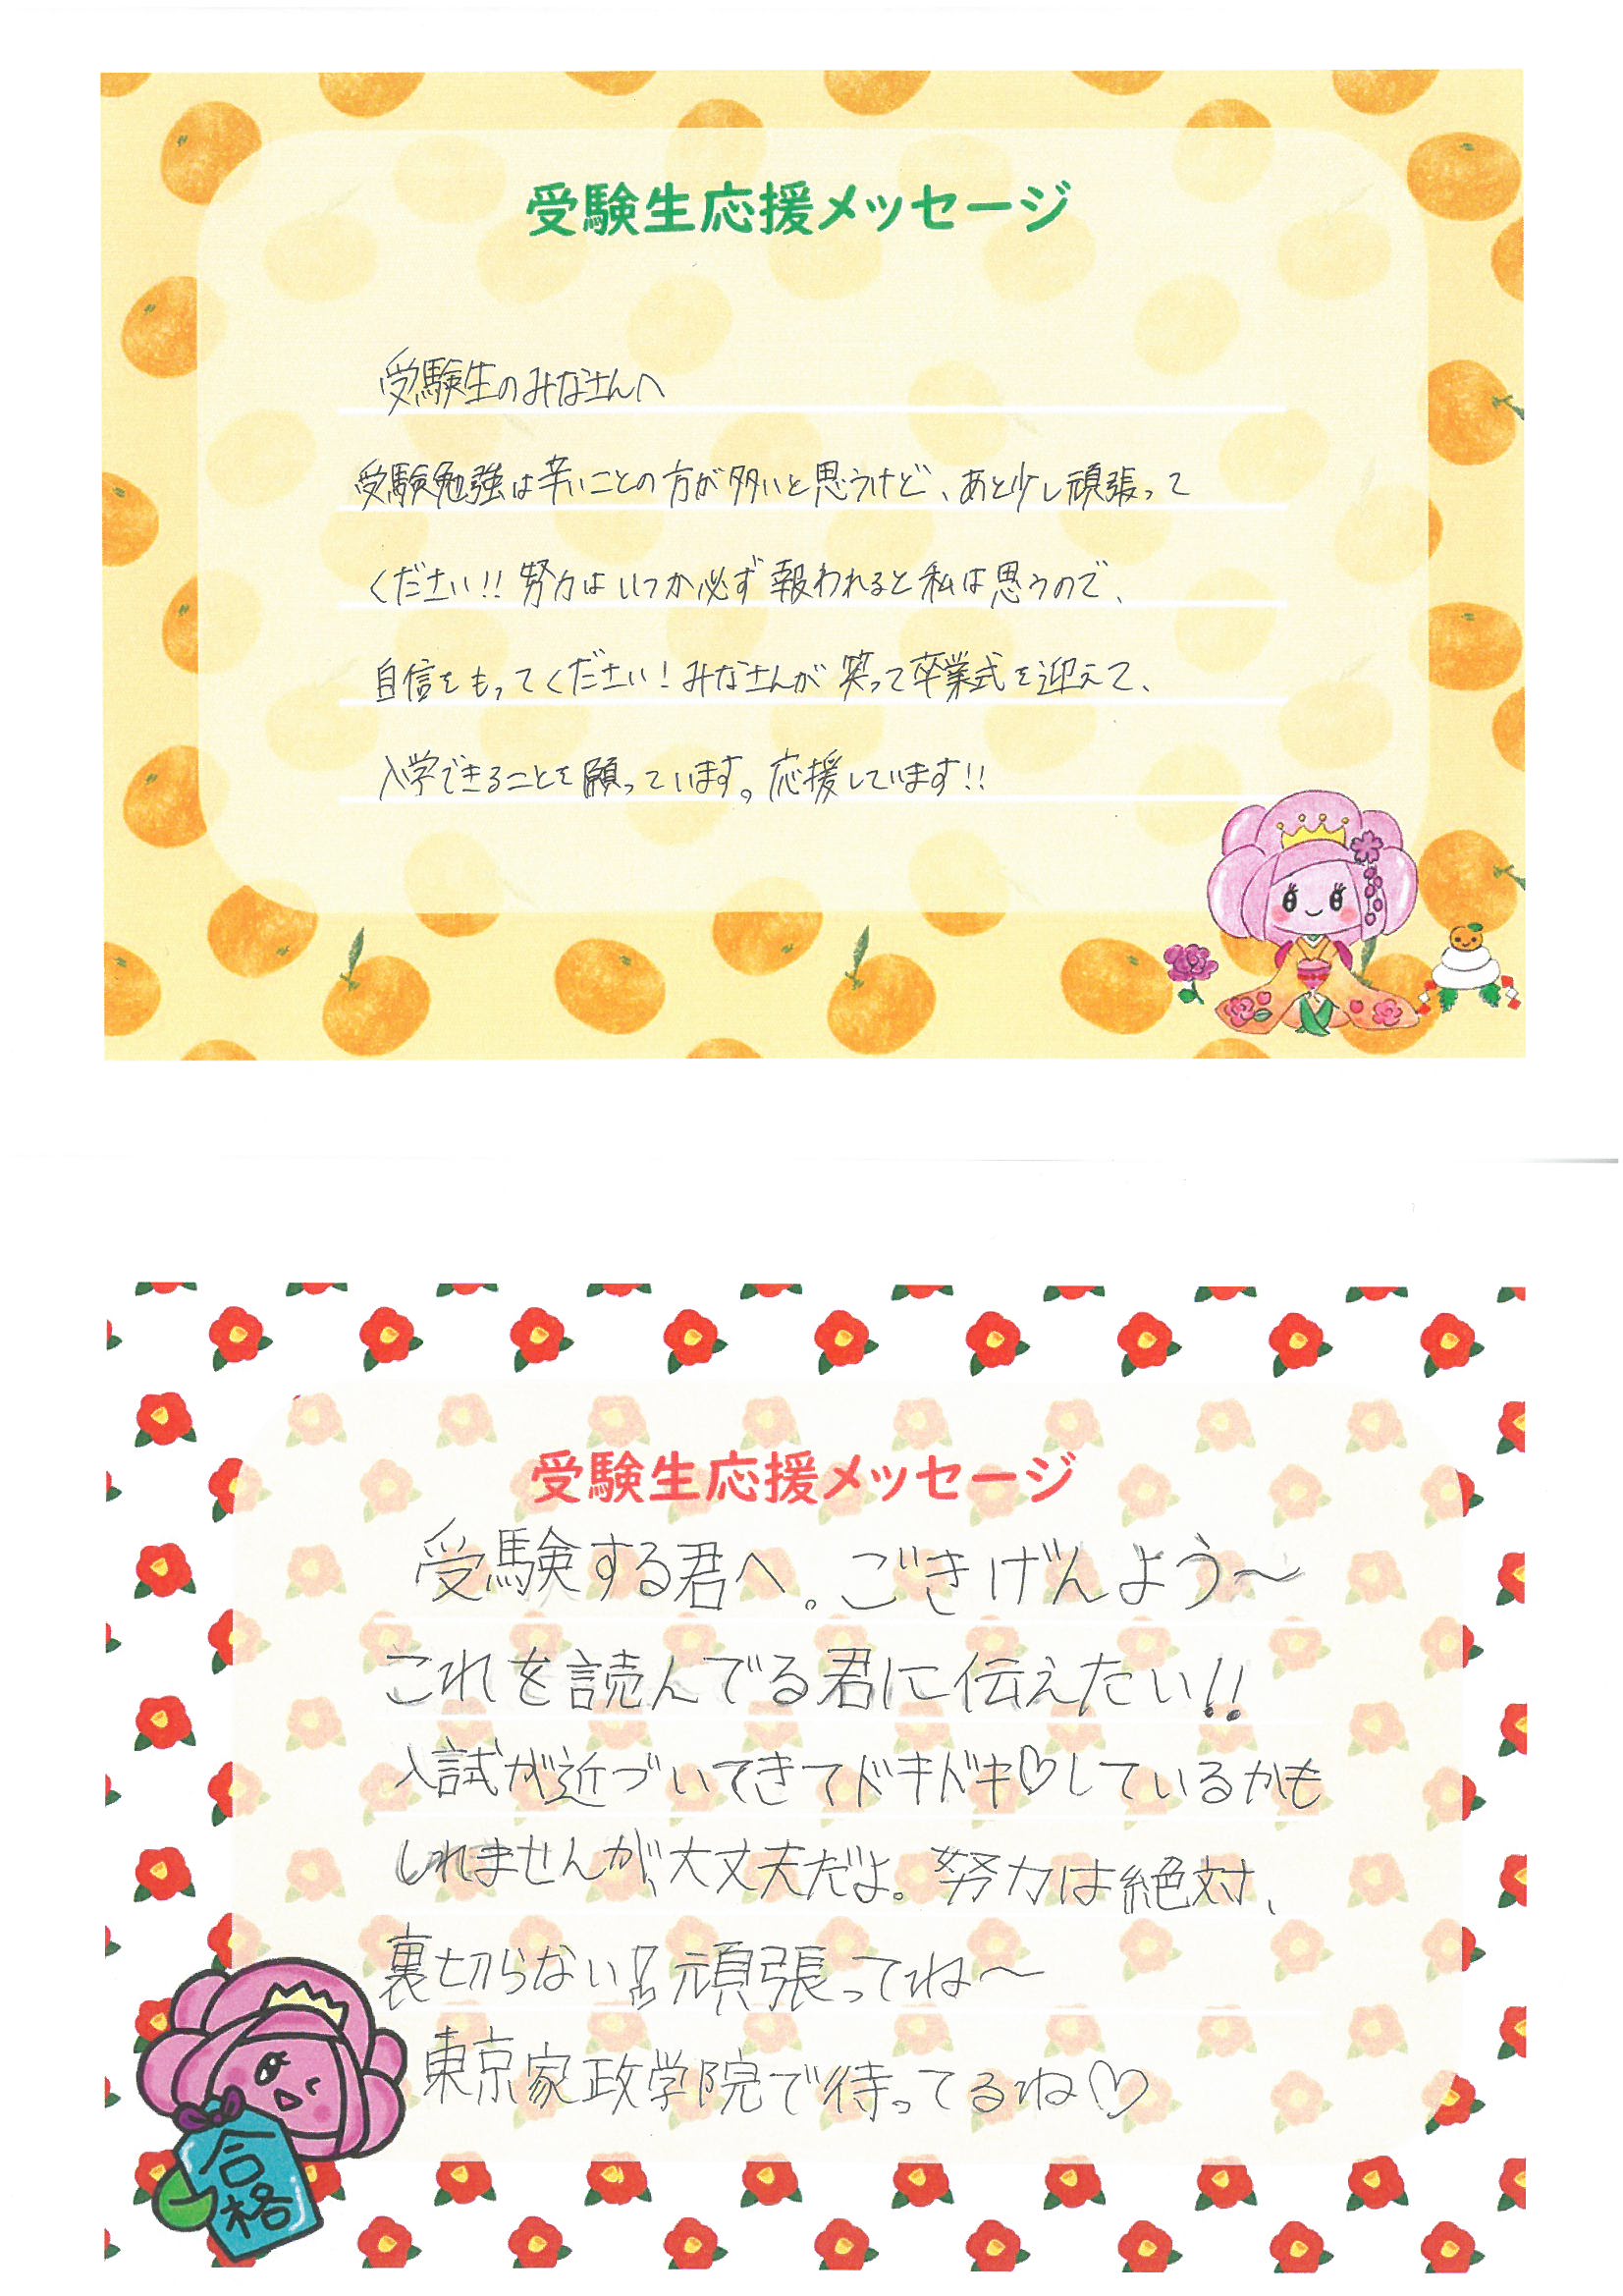 受験生応援メッセージ
受験生のみなさんへ
受験勉強は辛いことの方が多いと思うけど、あと少し頑張って
ください!! 努力はいつか必ず報われると私は思うので、
自信をもってください！みなさんが笑って卒業式を迎えて、
入学できることを願っています。応援しています!!
受験生応援メッセージ
受験する君へ。ごきげんよう〜
これを読んでる君に伝えたい!!
入試が近づいてきてドキドキ♡しているかも
しれませんが、大丈夫だよ。努力は絶対、
裏切らない!! 頑張ってね〜
東京家政学院で待ってるね♡
合格